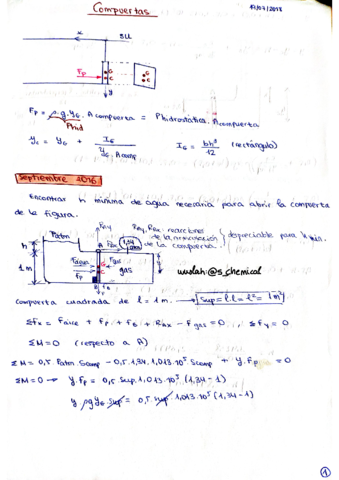 Compuertas
17/07/2018
x
SLL
G
C
G
C
Fp
y
Fp = ρ.g.yG . Acompuerta = Phidrostática . Acompuerta
Phid
yc = yG + IG / yG . Acomp
IG = bh³/12 (rectángulo)
Septiembre 2016
Encontrar h mínima de agua necesaria para abrir la compuerta
de la figura.
Patm
RAy
RAy, RAx : reacciones
de la
de la compuerta.
despreciable para h mín.
h
A
1,34 atm
1m
Fagua
Fgas
gas
Fp
B
wuolah: @s_chemical
Compuerta cuadrada de l = 1m. → Sup = l.l = l² = 1m²
ΣFx = Faire + Fp + FB + RAx − Fgas = 0 ; ΣFy = 0
ΣM=0 (respecto a A)
ΣM = 0,5. Patm. Scomp − 0,5. 1,34. 1,013.10⁵ Scomp + y.Fp = 0
ΣM=0 → y.Fp = 0,5. Sup. 1,013.10⁵ (1,34 − 1)
y ρg yG sup = 0,5. sup. 1,013.10⁵ (1,34 − 1)
1